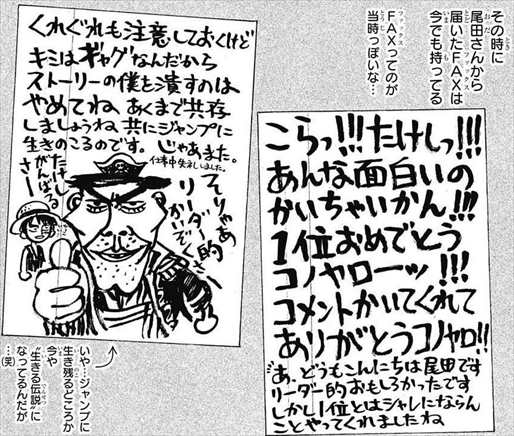 その時に
尾田さんから
届いたFAXは
今でも持ってる
FAXってのが
当時っぽいな…
こらっ!!!たけしっ!!!
あんな面白いの
かいちゃいかん!!!
1位おめでとう
コノヤローッ!!!
コメントかいてくれて
ありがとうコノヤロ!!
あ、どうもこんにちは尾田です
リーダー的おもしろかったです
しかし1位とはシャレにならん
ことやってくれましたね
くれぐれも注意しておくけど
キミはギャグなんだから
ストーリーの僕を潰すのは
やめてね あくまで共存
しましょうね 共にジャンプに
生きのこるのです。じゃあまた。
仕事中失礼しました。
そりゃあ
リーダー的
かいぞくさー
たけしも
がんばる
さー
いや…ジャンプに
生き残るどころか
今や
“生きる伝説”に
なってるんだが
…(笑)